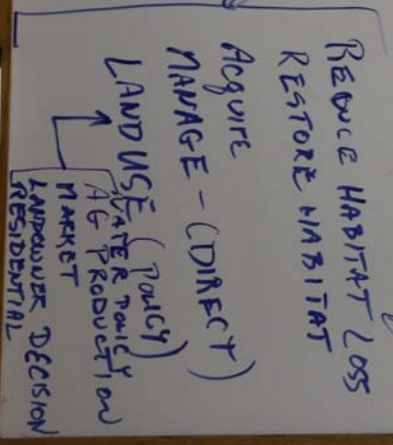 REDUCE HABITAT LOSS
RESTORE HABITAT
ACQUIRE
MANAGE - (DIRECT)
LANDUSE (POLICY)
WATER POLICY
AG PRODUCTION
MARKET
LANDOWNER DECISION
RESIDENTIAL